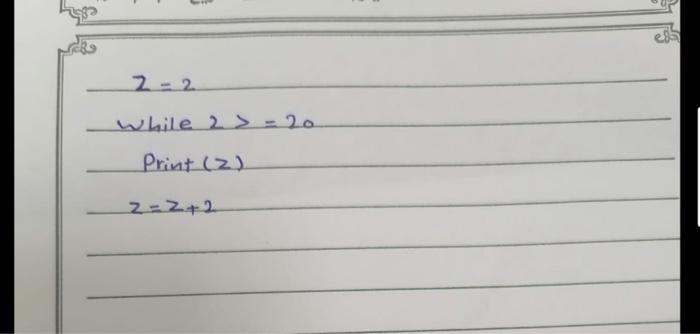 z = 2
while 2 > = 20
Print (z)
z = z + 2